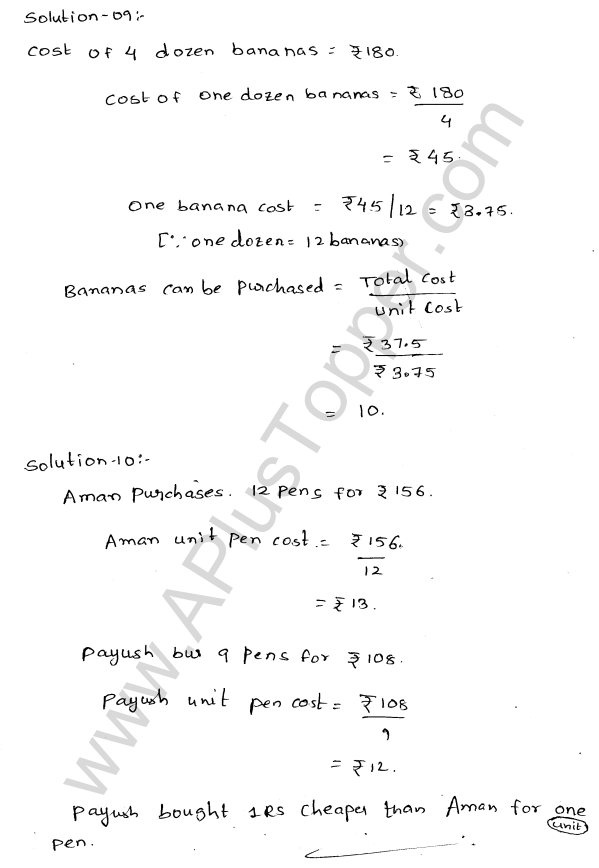 Solution-09:-
Cost of 4 dozen bananas = ₹180.
Cost of one dozen bananas = ₹ 180
4
= ₹45.
One banana cost = ₹45/12 = ₹3.75.
[∵ one dozen = 12 bananas)
Bananas can be purchased = Total cost
unit cost
= ₹37.5
₹3.75
= 10.
Solution-10:-
Aman Purchases. 12 Pens for ₹156.
Aman unit pen cost. = ₹156.
12
= ₹13.
Payush bus 9 pens for ₹108.
Payush unit pen cost = ₹108
9
= ₹12.
Payush bought 1RS cheaper than Aman for one
(unit)
pen.
www.APlusTopper.com